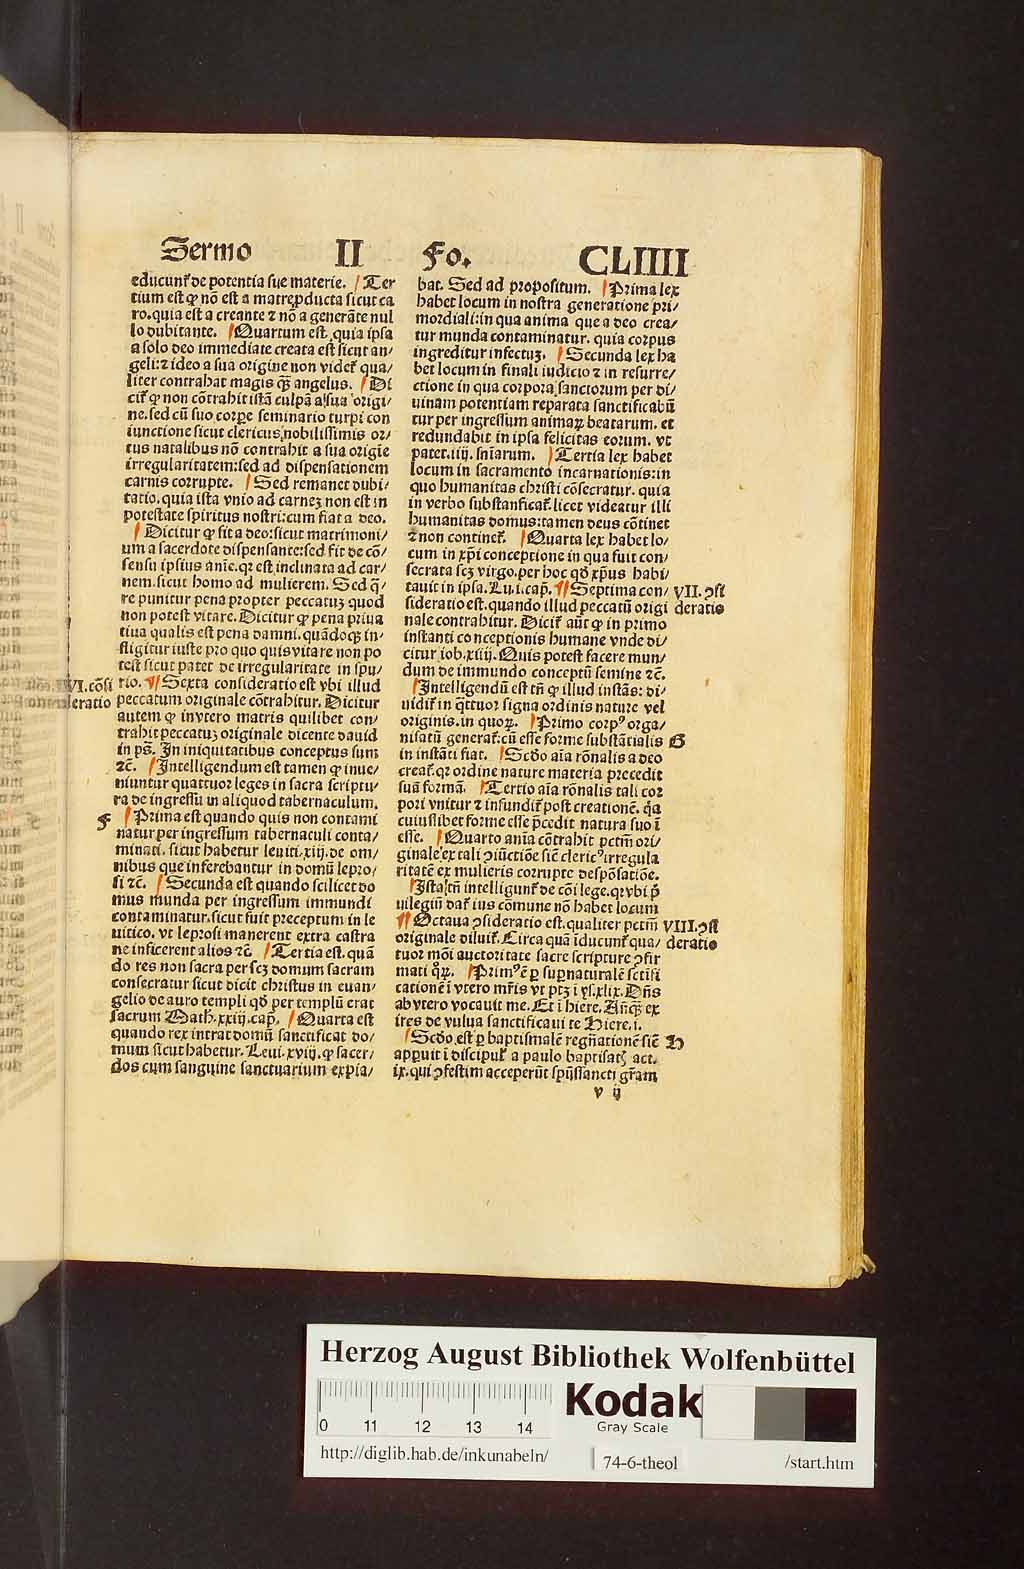 Sermo II Fo. CLIIII
educunt̄ de potentia sue materie. Ter
tium est ꝙ nō est a matre ꝓducta sicut ca
ro. quia est a creante ⁊ nō a generāte nul
lo dubitante. Quartum est. quia ipsa
a solo deo immediate creata est sicut an/
geli: ⁊ ideo a sua origine non videt̄ qua/
liter contrahat magis q̄ꝫ angelus. Di
cit̄ ꝙ non cōtrahit istā culpā a sua origi/
ne. sed cū suo corpe seminario turpi con
iunctione sicut clericus nobilissimis or/
tus natalibus nō contrahit a sua origīe
irregularitatem: sed ad dispensationem
carnis corrupte. Sed remanet dubi/
tatio. quia ista vnio ad carneꝫ non est in
potestate spiritus nostri: cum fiat a deo.
Dicitur ꝙ fit a deo: sicut matrimoni/
um a sacerdote dispensante: sed fit de cō/
sensu ipsius anīe. qꝛ est inclinata ad car/
nem. sicut homo ad mulierem. Sed q̄/
re punitur pena propter peccatuꝫ quod
non potest vitare. Dicitur ꝙ pena priua
tiua qualis est pena damni. quādoqꝫ in/
fligitur iuste pro quo quis vitare non po
test sicut patet de irregularitate in spu/
rio. Sexta consideratio est vbi illud
VI. cōsi
deratio
peccatum originale cōtrahitur. Dicitur
autem ꝙ in vtero matris quilibet con/
trahit peccatuꝫ originale dicente dauid
in ps̄. In iniquitatibus conceptus sum
⁊c̄. Intelligendum est tamen ꝙ inue/
niuntur quattuor leges in sacra scriptu/
ra de ingressu in aliquod tabernaculum.
F Prima est quando quis non contami
natur per ingressum tabernaculi conta/
minati. sicut habetur leuiti. xiij. de om/
nibus que inferebantur in domū lepro/
si ⁊c̄. Secunda est quando scilicet do
mus munda per ingressum immundi
contaminatur. sicut fuit preceptum in le
uitico. vt leprosi manerent extra castra
ne inficerent alios ⁊c̄. Tertia est. quā
do res non sacra per scꝫ domum sacram
consecratur sicut dicit christus in euan/
gelio de auro templi qd̄ per templū erat
sacrum Math. xxiij. cap̄. Quarta est
quando rex intrat domū sanctificat do/
mum sicut habetur. Leui. xviij. ꝙ sacer/
dos cum sanguine sanctuarium expia/
bat. Sed ad propositum. Prima lex
habet locum in nostra generatione pri/
mordiali: in qua anima que a deo crea/
tur munda contaminatur. quia corpus
ingreditur infectuꝫ. Secunda lex ha
bet locum in finali iudicio ⁊ in resurre/
ctione in qua corpora sanctorum per di/
uinam potentiam reparata sanctificabū
tur per ingressum animaꝝ beatarum. et
redundabit in ipsa felicitas eorum. vt
patet. iiij. sniarum. Tertia lex habet
locum in sacramento incarnationis: in
quo humanitas christi cōsecratur. quia
in verbo substanficat̄. licet videatur illi
humanitas domus: tamen deus cōtinet
⁊ non continet̄. Quarta lex habet lo/
cum in xp̄i conceptione in qua fuit con/
secrata scꝫ virgo. per hoc qd̄ xp̄us habi
tauit in ipsa. Lu. i. cap̄. Septima con/
VII. ꝯsi
deratio
sideratio est. quando illud peccatū origi
nale contrahitur. Dicit̄ aūt ꝙ in primo
instanti conceptionis humane vnde di/
citur iob. xiiij. Quis potest facere mun/
dum de immundo conceptū semine ⁊c̄.
Intelligendū est tn̄ ꝙ illud instās: di/
uidit̄ in q̄ttuor signa ordinis nature vel
originis. in quoꝝ. Primo corpꝰ orga/
nisatū generat̄: cū esse forme substātialis G
in instāti fiat. Scd̄o aīa rōnalis a deo
creat̄. qꝛ ordine nature materia precedit
suā formā. Tertio aīa rōnalis tali cor
pori vnitur ⁊ infundit̄ post creationē. q̄a
cuiuslibet forme esse p̄cedit natura suo ī
esse. Quarto anīa cōtrahit pctm̄ ori/
ginale ex tali ꝯiūctiōe siē clericꝰ irregula
ritatē ex mulieris corrupte despōsatiōe.
Ista tn̄ intelligunt̄ de cōi lege. qꝛ vbi p̄
uilegiū dat̄ ius cōmune nō habet locum
Octaua ꝯsideratio est. qualiter pctm̄
VIII. ꝯsi
deratio
originale diluit̄. Circa quā īducunt̄ qua/
tuor mōi auctoritate sacre scripture ꝯfir
mati q̊ꝝ. Primꝰ ē ꝑ supnaturalē sctīfi
cationē ī vtero mr̄is vt ptꝫ ī ys. xlix. Dn̄s
ab vtero vocauit me. Et ī hiere. Anq̄ꝫ ex
ires de vulua sanctificaui te Hiere. i.
Scd̄o est ꝑ baptismalē regn̄ationē siē H
apparuit ī discipul̄ a paulo baptisatꝫ act.
ix. qui ꝯfestim acceperūt sp̄ussancti gr̄am
v ij
Herzog August Bibliothek Wolfenbüttel
0 11 12 13 14
Kodak
Gray Scale
http://diglib.hab.de/inkunabeln/ 74-6-theol /start.htm